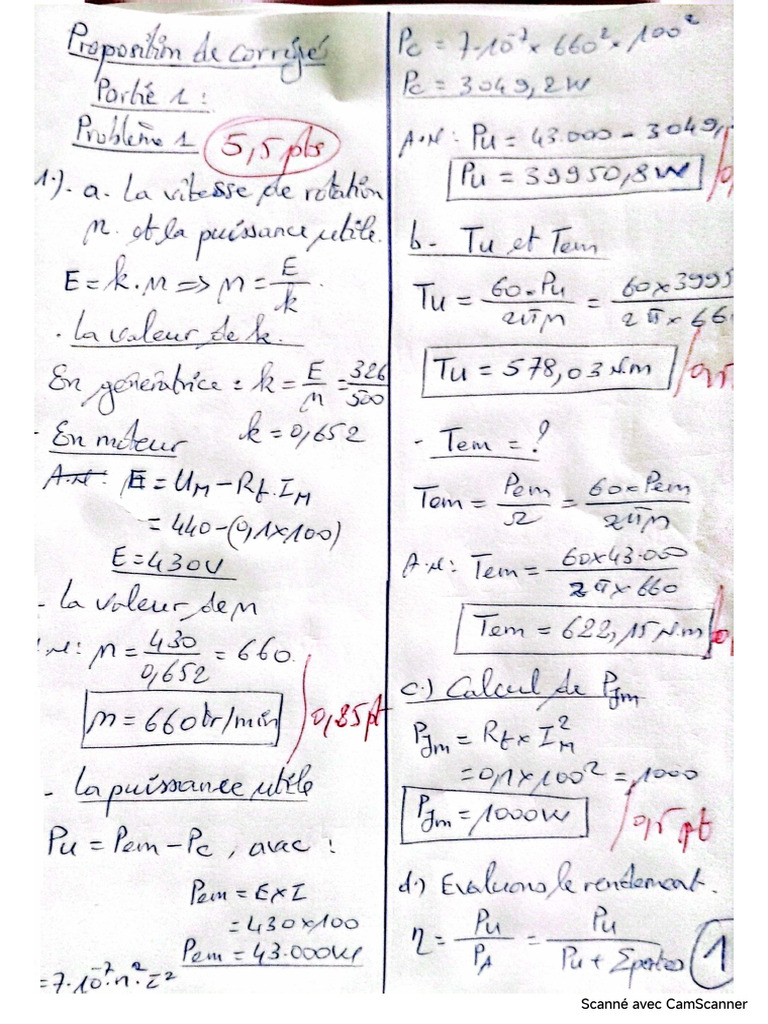 Proposition de corrigés
Partie 1 :
Problème 1 5,5 pts
1.). a. La vitesse de rotation
n. et la puissance utile.
E = k.n => n = E/k.
. La valeur de k.
En génératrice : k = E/n = 326/500
k = 0,652
- En moteur
A.N: E = UM - Rt.IM
= 440 - (0,1x100)
E = 430V
- La valeur de n
.N: n = 430/0,652 = 660.
n = 660 tr/min 0,25pt
- La puissance utile
Pu = Pem - Pc, avec :
Pem = E x I
= 430 x 100
Pem = 43.000W
= 7.10⁻⁷.n².I²
Pc = 7.10⁻⁷ x 660² x 100²
Pc = 3049,2W
A.N: Pu = 43.000 - 3049,
Pu = 39950,8W
b- Tu et Tem
Tu = 60.Pu/2πn = 60x3995/2π x 66
Tu = 578,03 N.m
- Tem = ?
Tem = Pem/Ω = 60.Pem/2πn
A.N: Tem = 60x43.000/2π x 660
Tem = 622,15 N.m
c.) Calcul de PJm
PJm = Rt x IM²
= 0,1 x 100² = 1000
PJm = 1000W 0,5 pt
d.) Evaluons le rendement.
η = Pu/PA = Pu/Pu + Σpertes 1
Scanné avec CamScanner